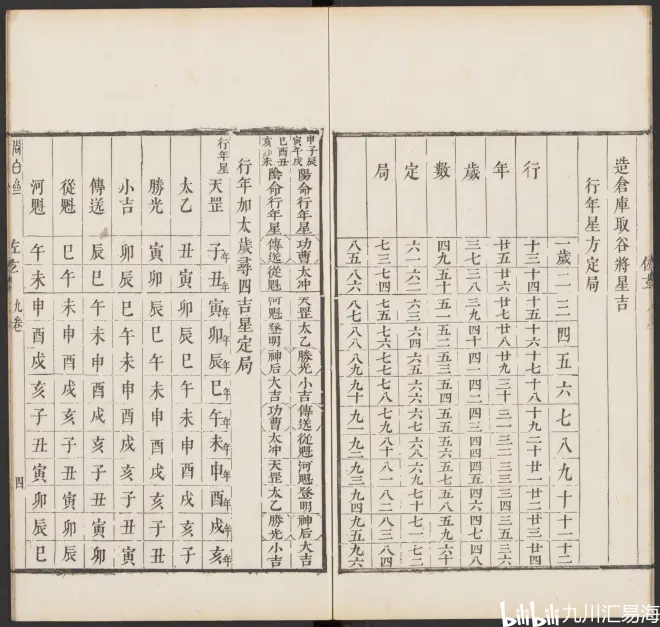 造倉庫取谷將星吉
行年星方定局
行年歲數定局
一歲 二 三 四 五 六 七 八 九 十 十一 十二
十三 十四 十五 十六 十七 十八 十九 二十 廿一 廿二 廿三 廿四
廿五 廿六 廿七 廿八 廿九 三十 三一 三二 三三 三四 三五 三六
三七 三八 三九 四十 四一 四二 四三 四四 四五 四六 四七 四八
四九 五十 五一 五二 五三 五四 五五 五六 五七 五八 五九 六十
六一 六二 六三 六四 六五 六六 六七 六八 六九 七十 七一 七二
七三 七四 七五 七六 七七 七八 七九 八十 八一 八二 八三 八四
八五 八六 八七 八八 八九 九十 九一 九二 九三 九四 九五 九六
申子辰寅午戌陽命行年星 功曹 太冲 天罡 太乙 勝光 小吉 傳送 從魁 河魁 登明 神后 大吉
巳酉丑亥卯未陰命行年星 傳送 從魁 河魁 登明 神后 大吉 功曹 太冲 天罡 太乙 勝光 小吉
行年加太歲尋四吉星定局
行年星 天罡 子年 丑年 寅年 卯年 辰年 巳年 午年 未年 申年 酉年 戌年 亥年
太乙 丑 寅 卯 辰 巳 午 未 申 酉 戌 亥 子
勝光 寅 卯 辰 巳 午 未 申 酉 戌 亥 子 丑
小吉 卯 辰 巳 午 未 申 酉 戌 亥 子 丑 寅
傳送 辰 巳 午 未 申 酉 戌 亥 子 丑 寅 卯
從魁 巳 午 未 申 酉 戌 亥 子 丑 寅 卯 辰
河魁 午 未 申 酉 戌 亥 子 丑 寅 卯 辰 巳
尚白 九卷 四
bilibili 九川汇易海